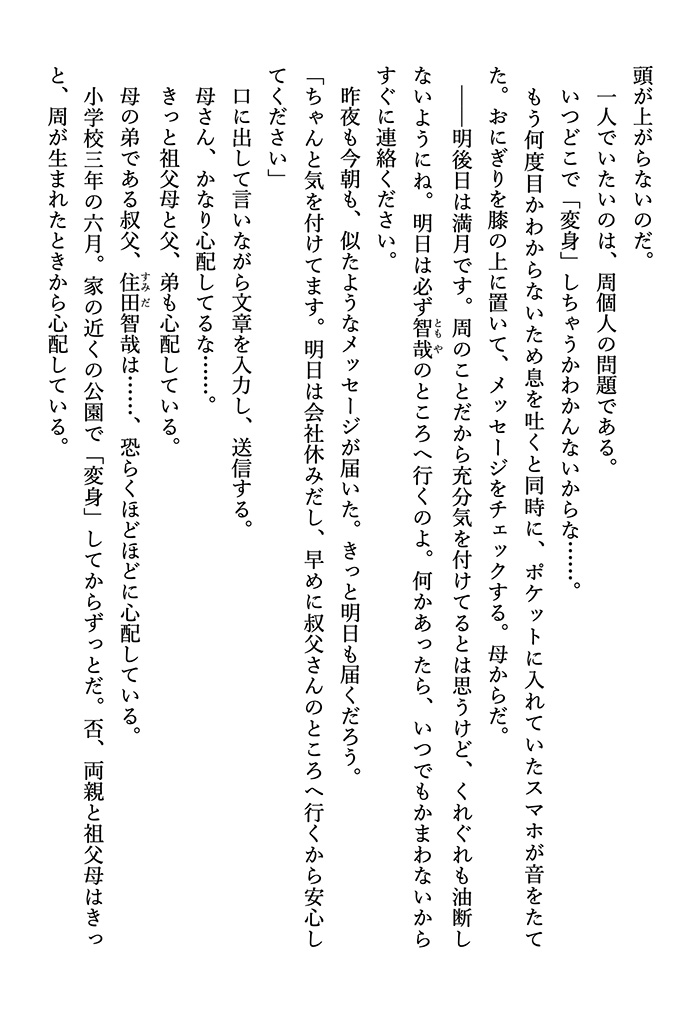 頭が上がらないのだ。
　一人でいたいのは、周個人の問題である。
　いつどこで「変身」しちゃうかわかんないからな……。
　もう何度目かわからないため息を吐くと同時に、ポケットに入れていたスマホが音をたて
た。おにぎりを膝の上に置いて、メッセージをチェックする。母からだ。
　――明後日は満月です。周のことだから充分気を付けてるとは思うけど、くれぐれも油断し
ないようにね。明日は必ず智哉ともやのところへ行くのよ。何かあったら、いつでもかまわないから
すぐに連絡ください。
　昨夜も今朝も、似たようなメッセージが届いた。きっと明日も届くだろう。
「ちゃんと気を付けてます。明日は会社休みだし、早めに叔父さんのところへ行くから安心し
てください」
　口に出して言いながら文章を入力し、送信する。
　母さん、かなり心配してるな……。
　きっと祖父母と父、弟も心配している。
　母の弟である叔父、住田すみだ智哉は……、恐らくほどほどに心配している。
　小学校三年の六月。家の近くの公園で「変身」してからずっとだ。否、両親と祖父母はきっ
と、周が生まれたときから心配している。